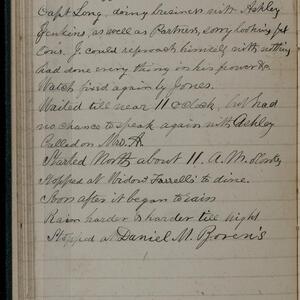 Capt Long, doing business with Ashley
Jenkins, as well as Partner, sorry looking, but
Cons. J. could reproach himself with nothing
had done every thing in his power &c
Watch fixed again by Jones.
Waited till near 11 o'clock, but had
no chance to speak again with Ashley
Called on Mrs. A.
Started North about 11. A.M.
Stopped at Widow Farrell's to dine.
Soon after it began to rain
Rain harder & harder till night
Stopped at Daniel M. Boren's